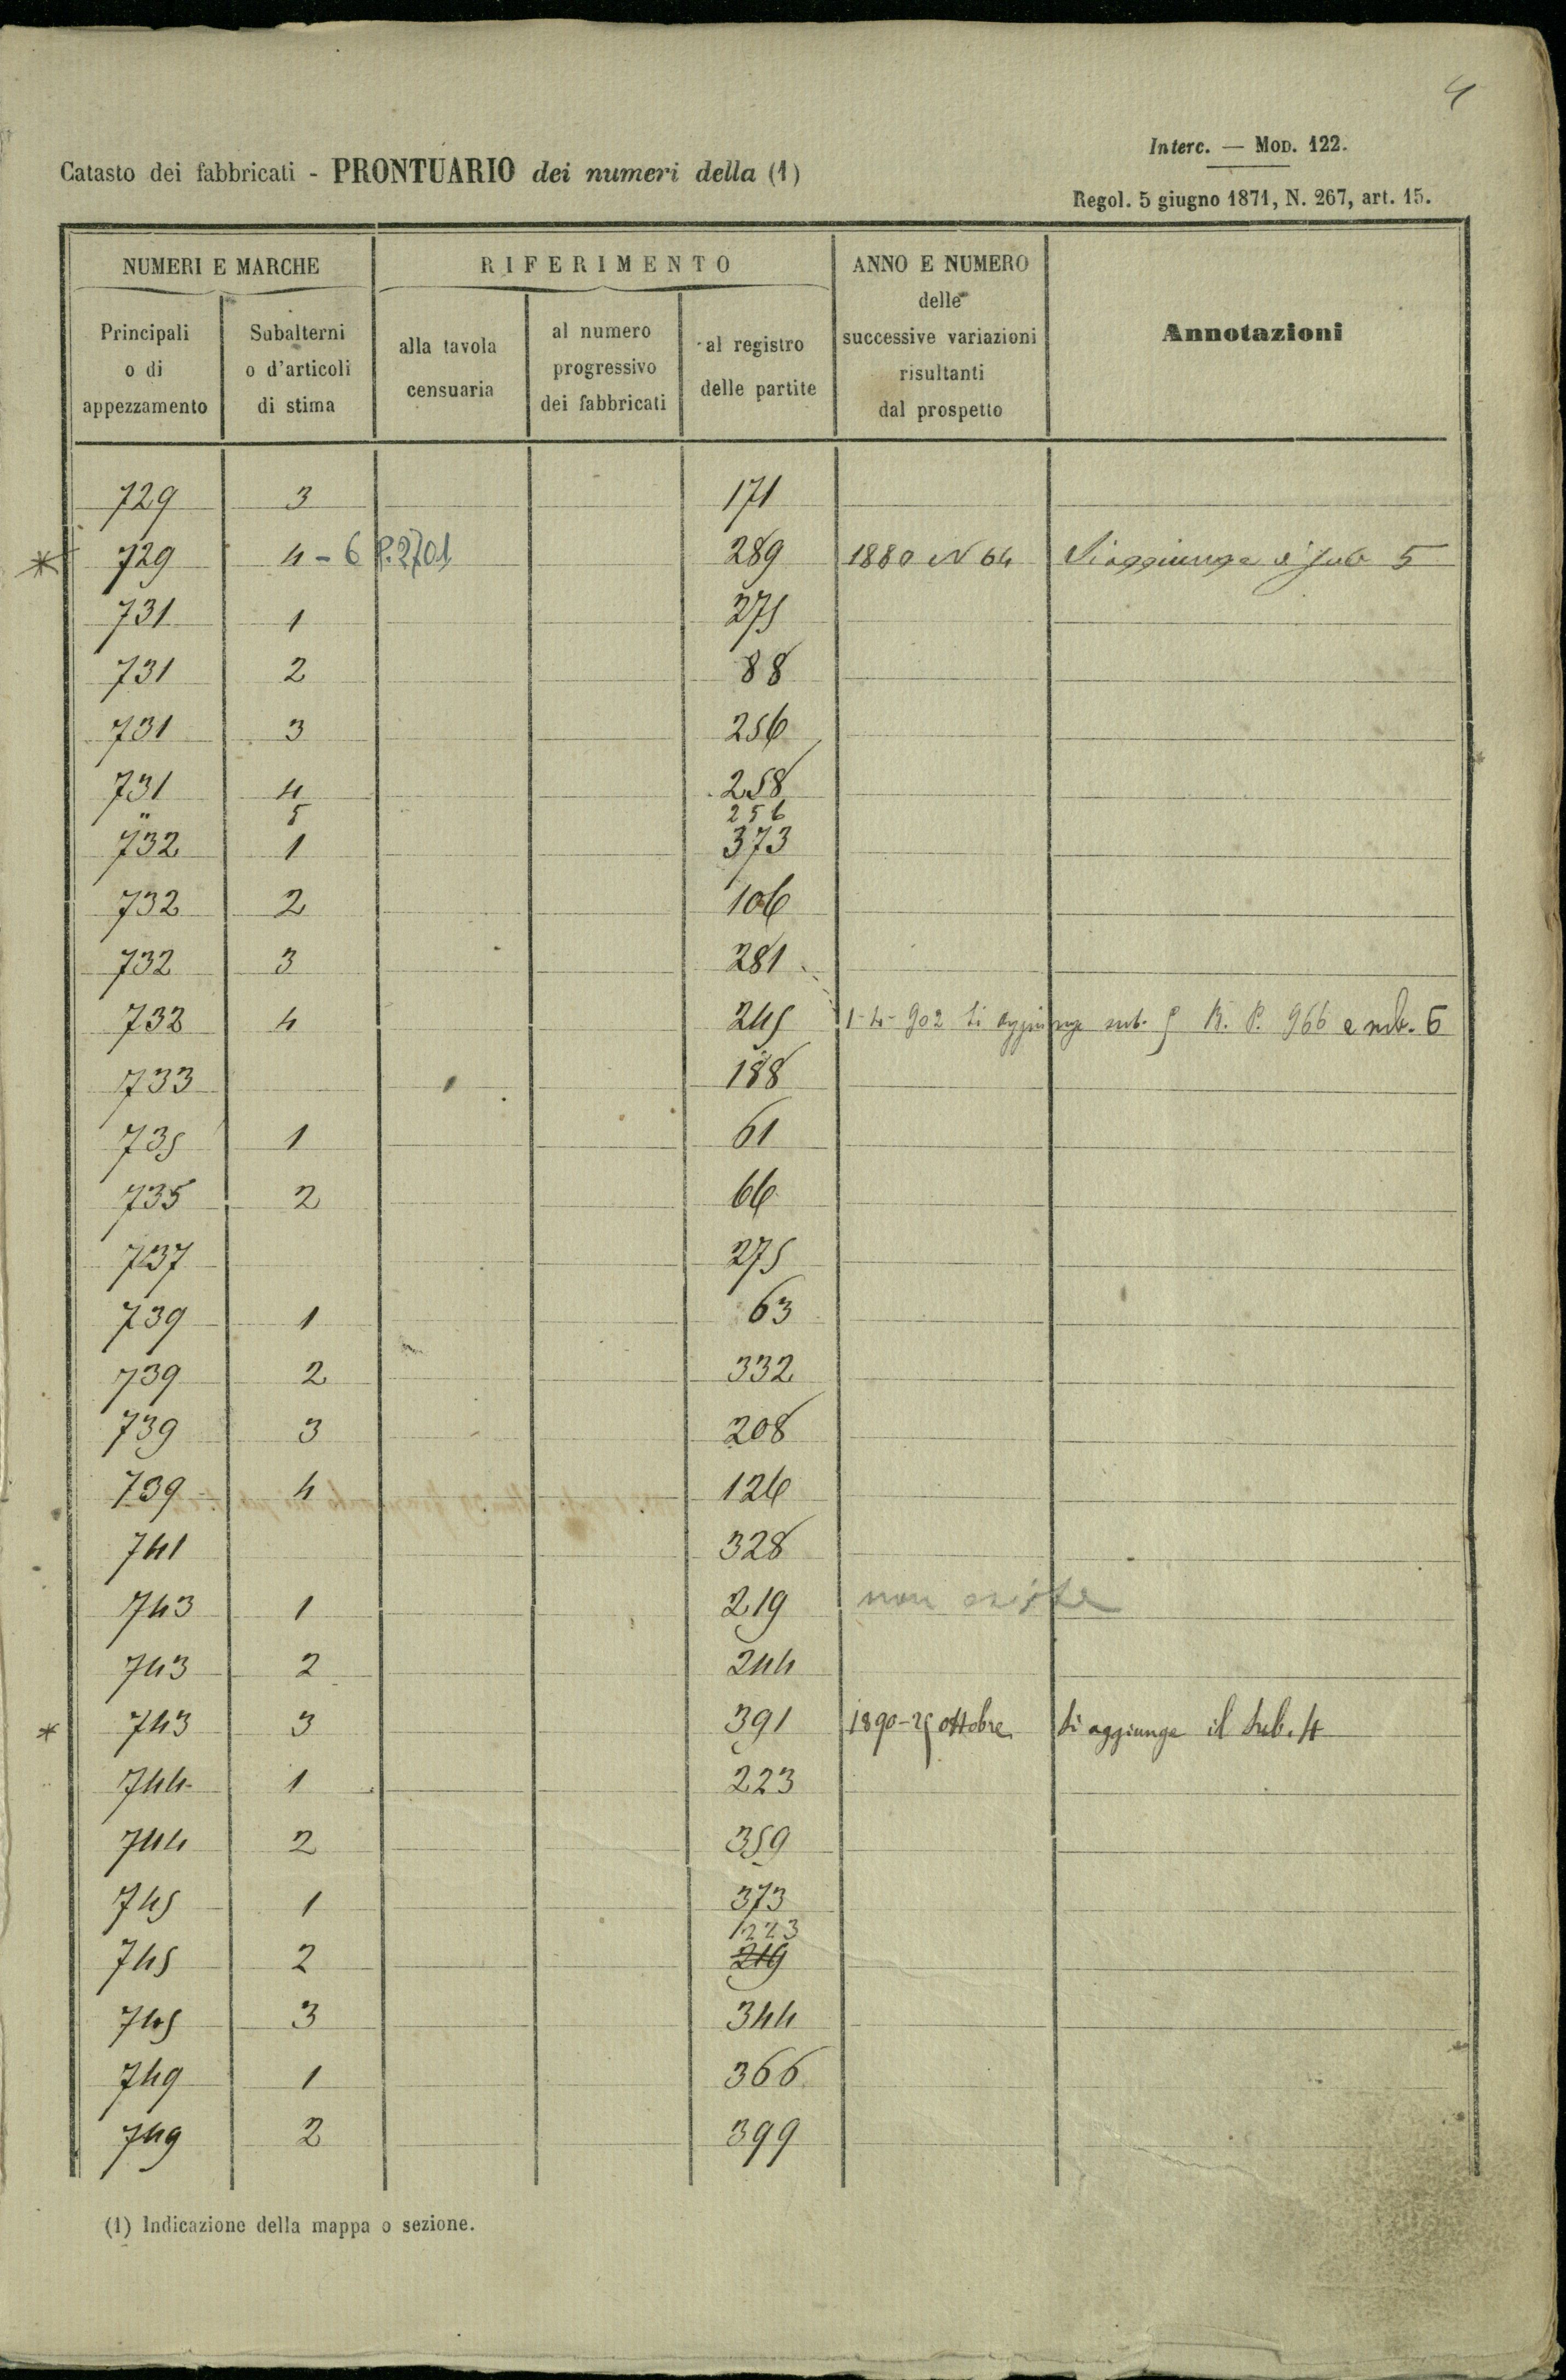 4
Interc. — Mod. 122.
Catasto dei fabbricati - PRONTUARIO dei numeri della (1)
Regol. 5 giugno 1871, N. 267, art. 15.
NUMERI E MARCHE
RIFERIMENTO
ANNO E NUMERO
delle
successive variazioni
risultanti
dal prospetto
Annotazioni
Principali
o di
appezzamento
Subalterni
o d'articoli
di stima
alla tavola
censuaria
al numero
progressivo
dei fabbricati
al registro
delle partite
729 3 171
* 729 4 - 6 P. 2701 289 1880 N 64 Si aggiunge il sub 5
731 1 275
731 2 88
731 3 256
731 4 258
" 5 256
732 1 373
732 2 106
732 3 281
732 4 245 1-4-902 si aggiunge sub. 5 R. P. 966 e sub. 6
733 188
735 1 61
735 2 66
737 275
739 1 63
739 2 332
739 3 208
739 4 126
741 328
743 1 219 non esiste
743 2 244
* 743 3 391 1890-25 ottobre Si aggiunge il Sub. 4
744 1 223
744 2 359
745 1 373
1223
745 2 219
745 3 344
749 1 366
749 2 399
(1) Indicazione della mappa o sezione.